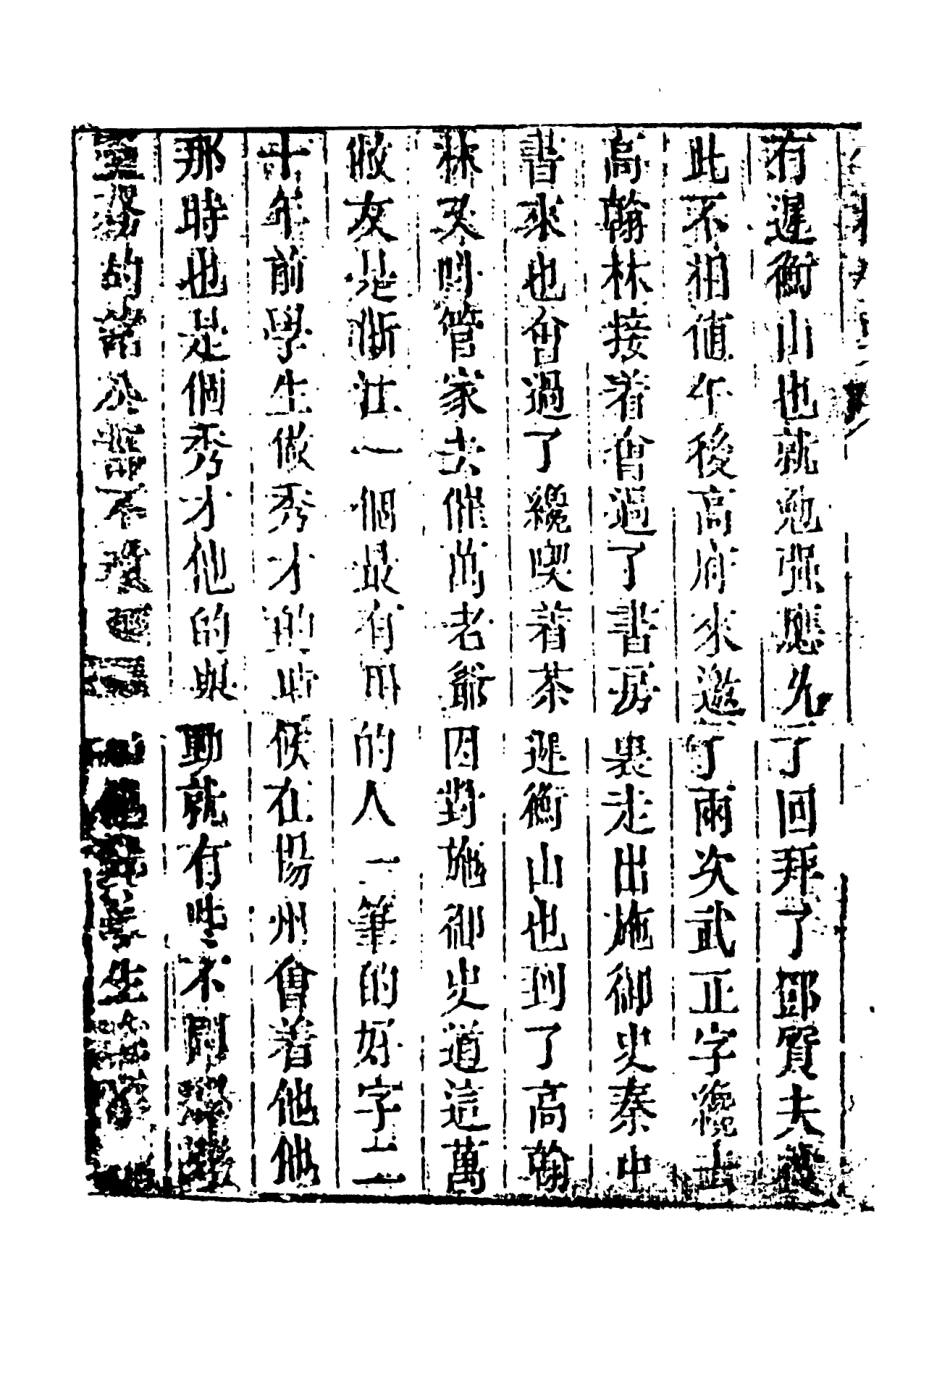 有遲衡山也就勉强應允了回拜了鄧質夫彼
此不相值午後高府來邀了兩次武正字纔去
高翰林接着會過了書房裏走出施御史秦中
書來也會過了纔喫着茶遲衡山也到了高翰
林又呌管家去催萬老爺因對施御史道這萬
敝友是浙江一個最有用的人一筆的好字二
十年前學生做秀才的時候在揚州會着他他
那時也是個秀才他的舉動就有些不同
鹽務的諸公都不敢他比學生